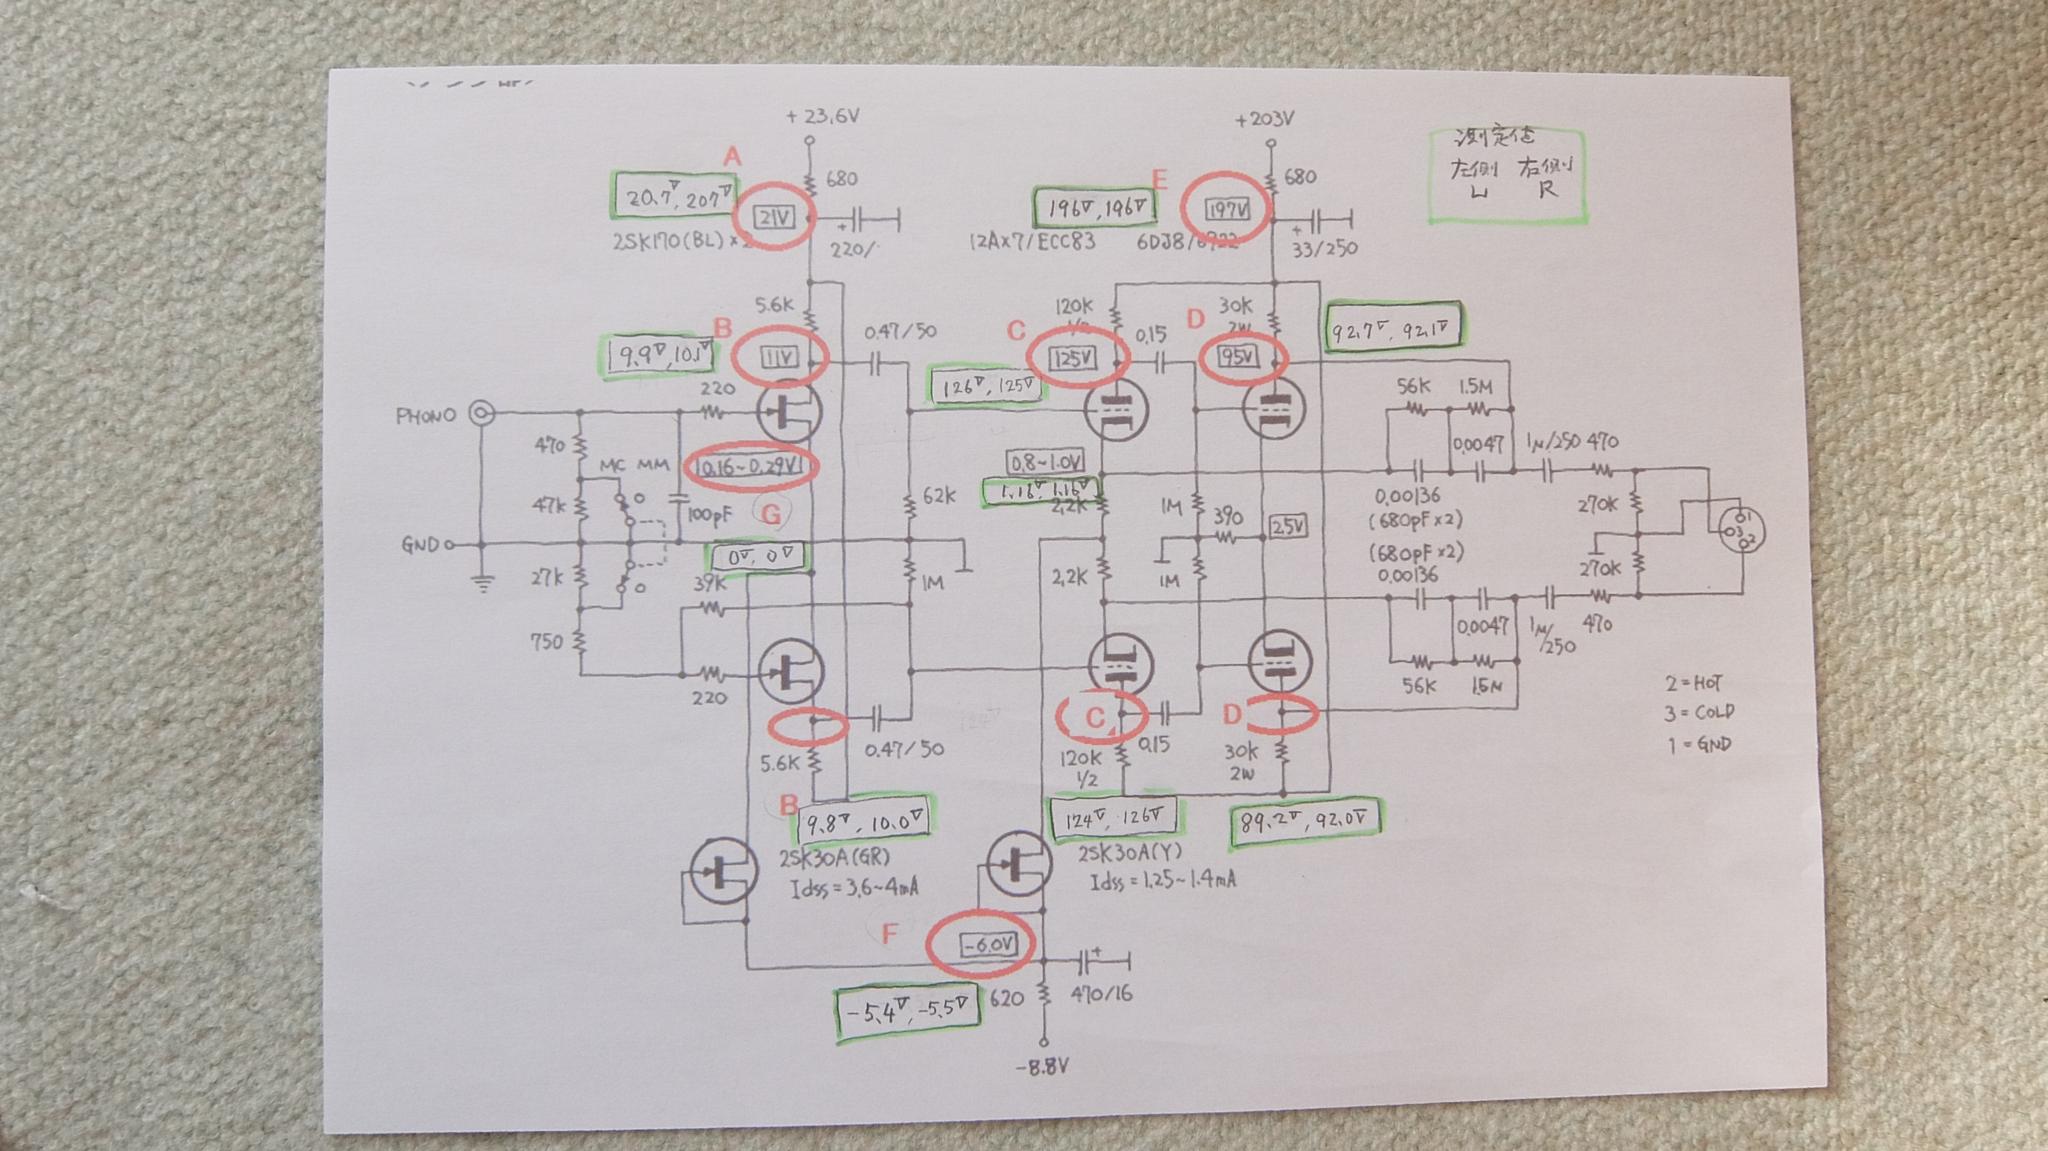 +23.6V
+203V
測定値
左側 右側
L R
A
680
20.7V, 20.7V
21V
2SK170(BL)×2
220/
E
680
196V, 196V
197V
12AX7/ECC83
33/250
5.6K
B
0.47/50
9.9V, 10.1V
11V
120K
C
0.15
125V
126V, 125V
30K
2W
D
95V
92.7V, 92.1V
220
PHONO
470
MC MM
0.16~0.29V
47K
100pF
G
GND
0V, 0V
27K
39K
750
220
62K
1M
0.8~1.0V
1.16V, 1.16V
2.2K
2.2K
1M
390
2.5V
1M
56K 1.5M
0.0047
1M/250 470
0.00136
(680pF×2)
270K
(680pF×2)
0.00136
270K
1
3
2
0.0047
1M/250
470
56K 1.5M
2=HOT
3=COLD
1=GND
0.47/50
5.6K
B
9.8V, 10.0V
C
0.15
120K
1/2
124V, 126V
D
30K
2W
89.2V, 92.0V
2SK30A(GR)
Idss=3.6~4mA
2SK30A(Y)
Idss=1.25~1.4mA
F
-6.0V
-5.4V, -5.5V
620
470/16
-8.8V